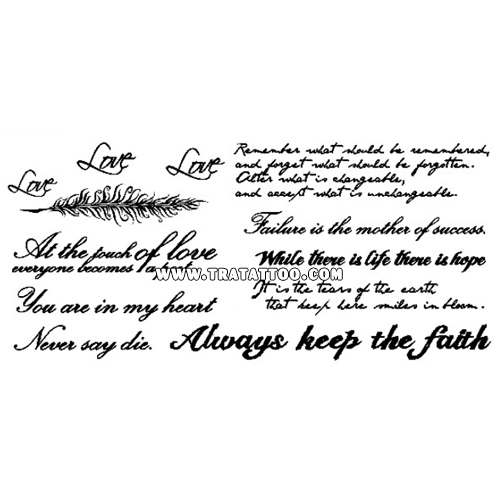 Love
Love
Love
At the touch of love
everyone becomes a poet
You are in my heart
Never say die.
Remember what should be remembered,
and forget what should be forgotten.
Alter what is changeable,
and accept what is unchangeable.
Failure is the mother of success.
While there is life there is hope
It is the tears of the earth
that keep here smiles in bloom.
Always keep the faith
WWW.TRATATTOO.COM